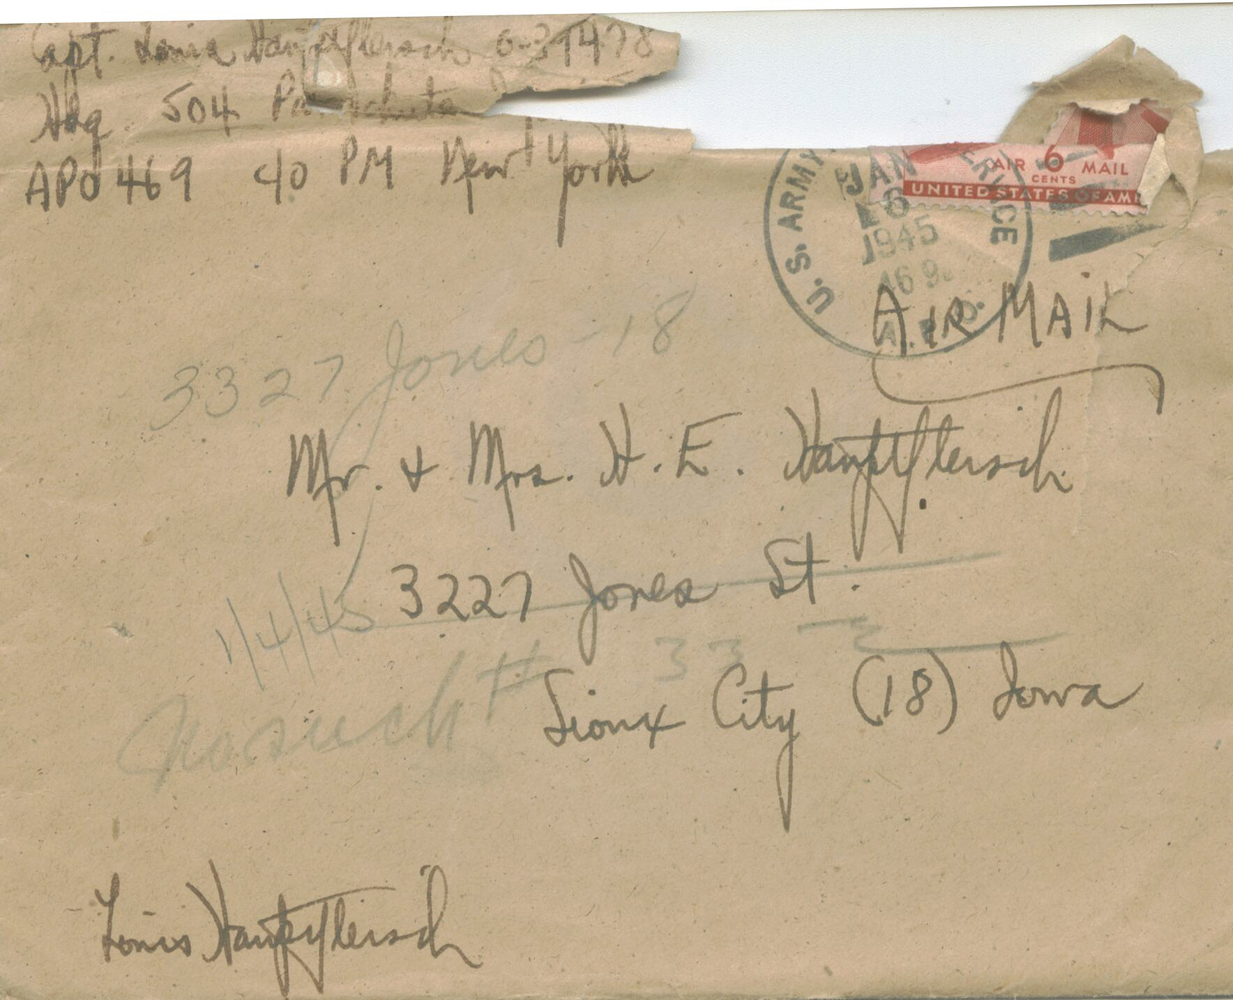 Capt. Louis Hauptfleisch O-397478
Hdq. 504 Parachute
APO 469 c/o PM New York
U.S. ARMY
A.P.O.
JAN
6
1945
469
AIR 6 MAIL
CENTS
UNITED STATES OF AM
AIR MAIL
3327 Jones - 18
Mr. + Mrs. H. E. Hauptfleisch
3227 Jones St.
1/4/45
33
No such #
Sioux City (18) Iowa
Louis Hauptfleisch